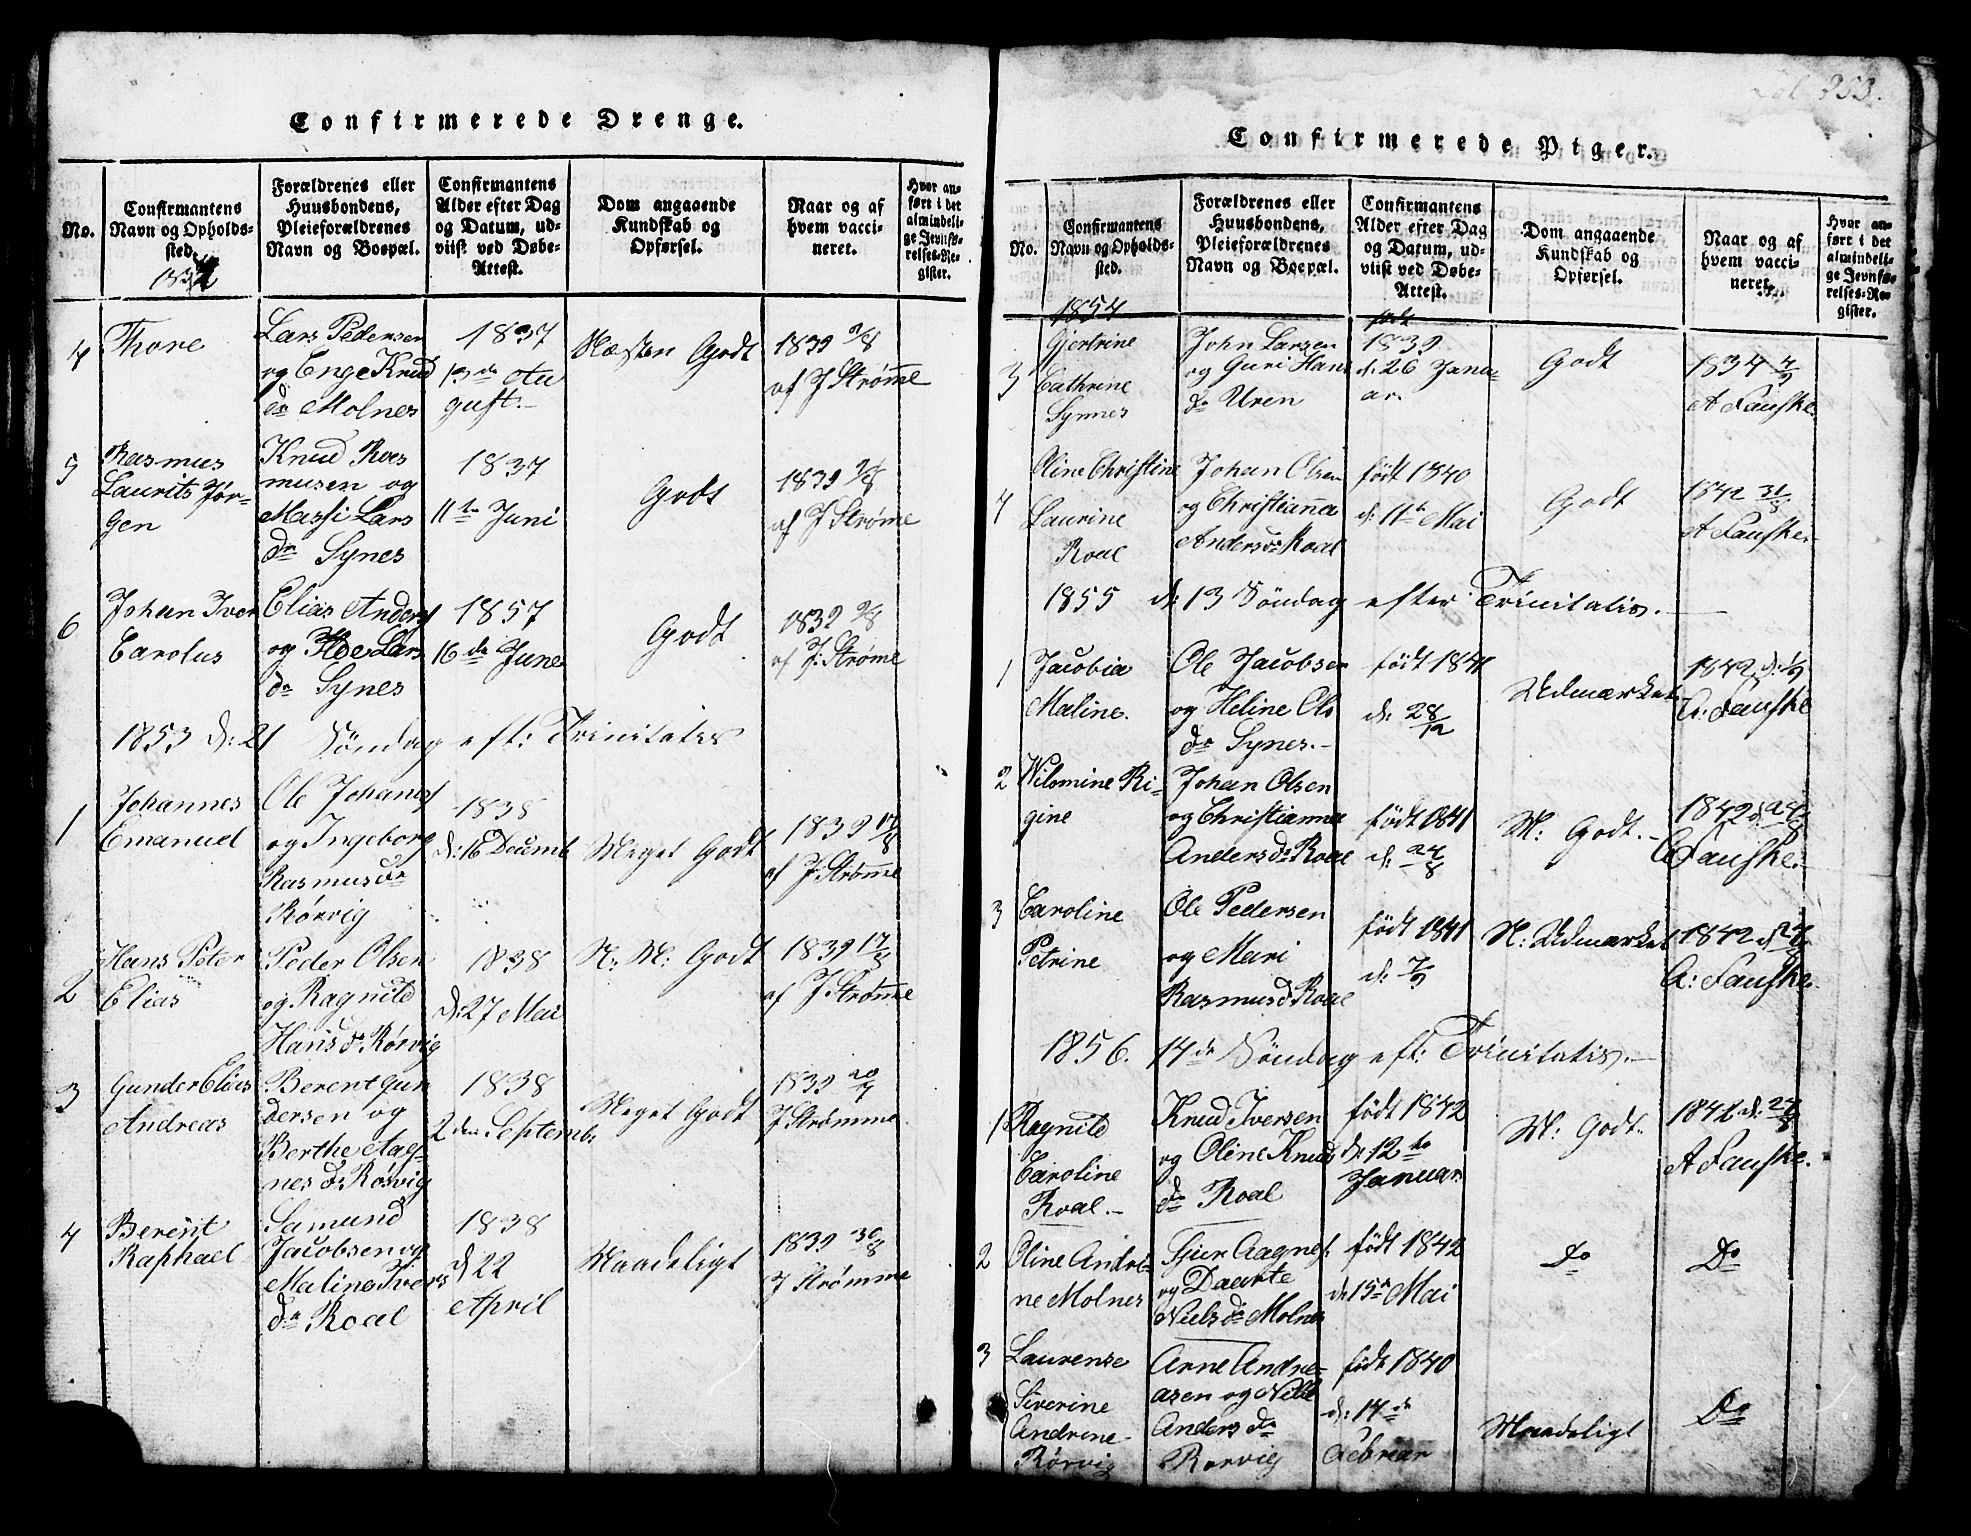 Confirmerede Drenge.
No.
Confirmantens
Navn og Opholds-
sted.
Forældrenes eller
Huusbondens,
Pleieforældrenes
Navn og Boepæl.
Confirmantens
Alder efter Dag
og Datum, ud-
viist ved Døbe-
Attest.
Dom angaaende
Kundskab og
Opførsel.
Naar og af
hvem vacci-
neret.
Hvor an-
ført i det
almindeli-
ge Jevnfø-
relses-Re-
gister.
4
Thore
Lars Pedersen
og Enge Knud
dr Molnes
1837
13de Au
gust.-
Næsten Godt
1839 2/8
af J Strømme
5
Rasmus
Laurits Jør-
gen
Knud Ras
musen og
Massi Lars
dr Synes
1837
11te Juni
Godt
1839 2/8
af J Strøme
6
Johan Iver
Carolus
Elias Anders
og Lars
dr Synes
1857
16de June
Godt
1839 2/8
af J: Strøme
1853 d: 21 Söndag eft: Trinitatis
1
Johannes
Emanuel
Ole Johanes
og Ingeborg
Rasmusdr
Rörvig
1838
d: 16 Decemb
Meget Godt
1839 17/8
af J: Strømme
2
Hans Peter
Elias
Peder Olsen
og Ragnild
Hans dr Rørvig
1838
d: 27 Mai
N: M: Godt
1839 17/8
af J Strømme
3
Gunder Elias
Andreas
Berent Gun
dersen og
Berthe Aag-
nes dr Rørvig
1838
2den Septemb:
Meget Godt
1839 20/7
J Strømme
4
Berent
Raphael
Samund
Jacobsen og
Maline Ivers
dr Roal
1838
d 22
April
Maadeligt
1839 30/8
J Strømme
353.
Confirmerede Piger.
No.
Confirmantens
Navn og Opholds-
sted.
Forældrenes eller
Huusbondens,
Pleieforældrenes
Navn og Boepæl.
Confirmantens
Alder efter Dag
og Datum, ud-
viist ved Døbe-
Attest.
Dom angaaende
Kundskab og
Opførsel.
Naar og af
hvem vacci-
neret.
Hvor an-
ført i det
almindeli-
ge Jevnfø-
relses-Re-
gister.
1854
3
Gjertrine
Cathrine
Synnes
John Larsen
og Guri Hans
dr Uren
født
1839
d: 26 Janu-
ar.
Godt
1834 4/9
A Fauske.
4
Oline Christine
Laurine
Roal
Johan Olsen
og Christianna
Anders dr Roal
født 1840
d: 11te Mai
Godt
1842 31/8
A Fauske.
1855 de 13 Söndag efter Trinitatis.
1
Jacobia
Maline.
Ole Jacobsen
og Heline Ols
dr Synes.-
født 1841
d: 28/12
Udmærket
1842 d: 1/9
A: Fauske
2
Vilomine Ri-
gine
Johan Olsen
og Christianna
Anders dr Roal
født 1841
d: 24/8
M: Godt.-
1842 d: 28/8
A Fauske.
3
Caroline
Petrine
Ole Pedersen
og Mari
Rasmusd Roal
født 1841
d: 7/9
N: Udmærket
1842 d 28/8
A: Fauske.
1856. 14de Söndag eft: Trinitatis.-
1
Ragnild
Caroline
Roal.-
Knud Iversen
og Oline Knuds
dr Roal
født 1842
d: 12te
Januar
M: Godt.
1842 d: 28/8
A Fauske.
2
Oline Andri-
ne Molnes
og Daarte
Niels dr Molnes
født 1842
d: 15 Mai
Do
Do
3
Laurense
Siverine
Andrine
Rørvig
Arne Andre-
asen og Nille
Anders dr
Rorvig
født 1840
d: 14de
Februar
Maadeligt
Do